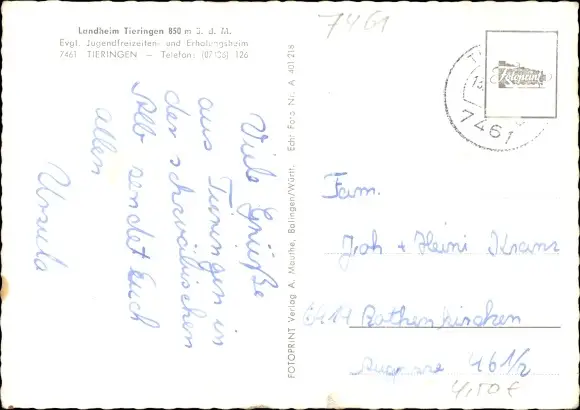 Landheim Tieringen 850 m ü. d. M.
Evgl. Jugendfreizeiten- und Erholungsheim
7461 TIERINGEN — Telefon: (07436) 126
7461
Fotoprint
7461
Viele Grüße
aus Tieringen in
der schwäbischen
Alb sendet Euch
allen
Ursula
FOTOPRINT Verlag A. Mauthe, Balingen/Württ. Echt Foto Nr. A 401 218
Fam.
Joh + Heini Kranz
Rothenkirchen
46 1/2
4,50 €